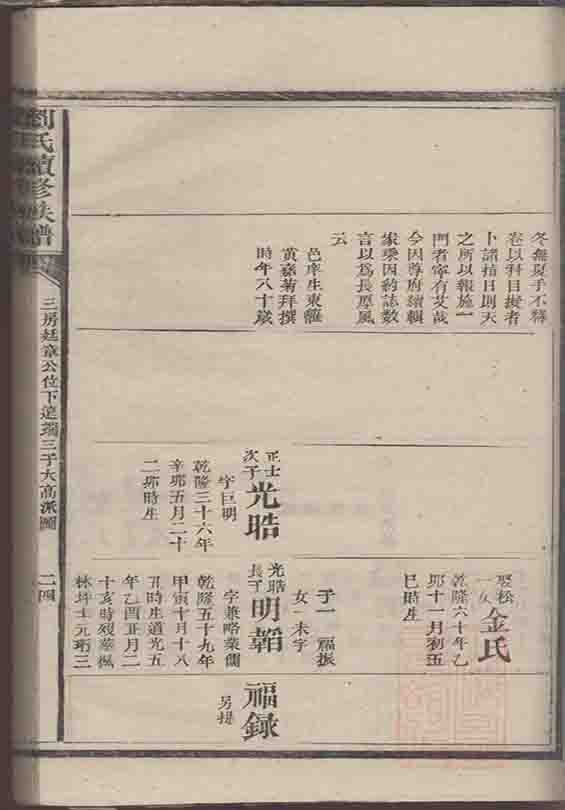 冬無夏手不釋
卷以科目擬者
卜諸指日則天
之所以報施一
門者寧有艾哉
今因尊府續輯
家乘因約誌數
言以為長厚風
云
邑庠生東籬
黃嘉菊拜撰
時年八十歲
娶松
一女
金氏
乾隆六十年乙
卯十一月初五
巳時生
子一 福振
女一未字
正士
次子
光晧
字巨明
乾隆三十六年
辛卯五月二十
二卯時生
光晧
長子
明韜
字兼略業儒
乾隆五十九年
甲寅十月十八
丑時生道光五
年乙酉正月二
十亥時歿葬楓
福錄
另提
劉氏續修族譜
三房廷章公位下
三子大高派圖
二四